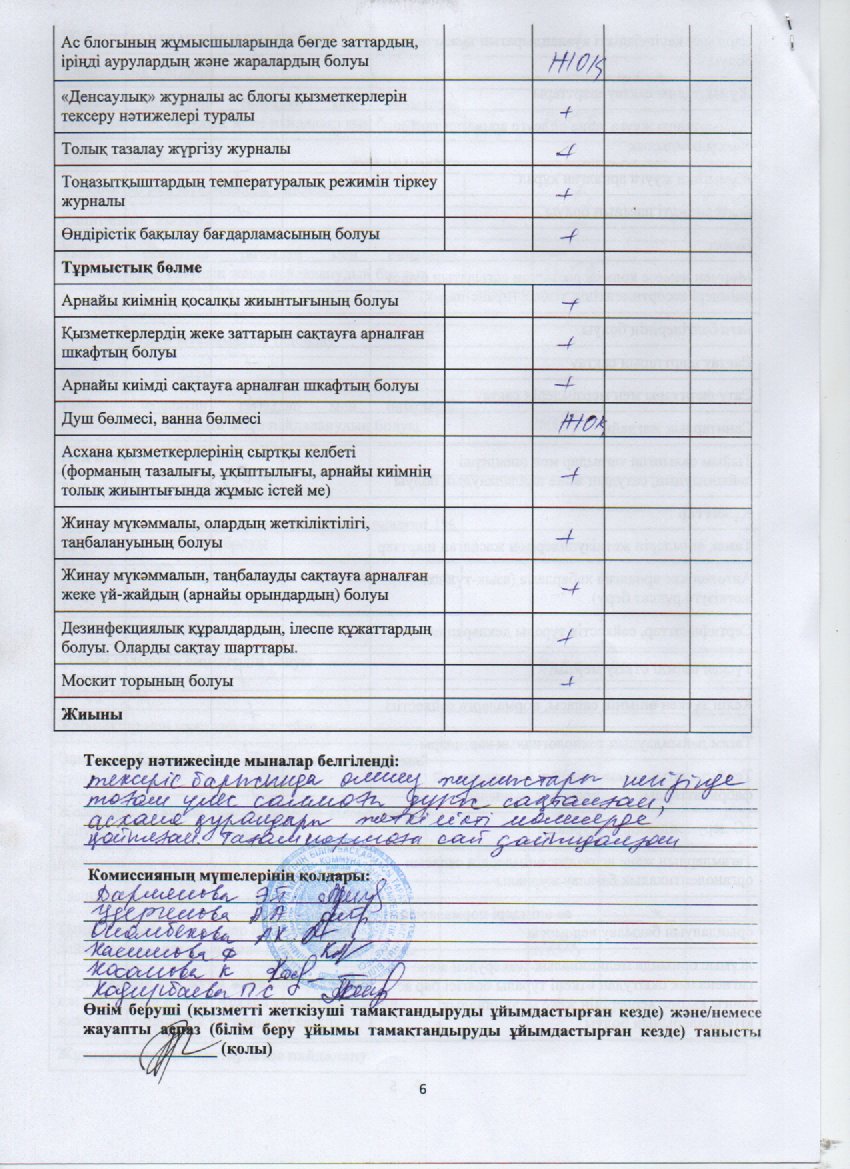 Ас блогының жұмысшыларында бөгде заттардың,
іріңді аурулардың және жаралардың болуы
жоқ
«Денсаулық» журналы ас блогы қызметкерлерін
тексеру нәтижелері туралы
+
Толық тазалау жүргізу журналы
+
Тоңазытқыштардың температуралық режимін тіркеу
журналы
+
Өндірістік бақылау бағдарламасының болуы
+
Тұрмыстық бөлме
Арнайы киімнің қосалқы жиынтығының болуы
+
Қызметкерлердің жеке заттарын сақтауға арналған
шкафтың болуы
+
Арнайы киімді сақтауға арналған шкафтың болуы
+
Душ бөлмесі, ванна бөлмесі
жоқ
Асхана қызметкерлерінің сыртқы келбеті
(форманың тазалығы, ұқыптылығы, арнайы киімнің
толық жиынтығында жұмыс істей ме)
+
Жинау мүкәммалы, олардың жеткіліктілігі,
таңбалануының болуы
+
Жинау мүкәммалын, таңбалауды сақтауға арналған
жеке үй-жайдың (арнайы орындардың) болуы
+
Дезинфекциялық құралдардың, ілеспе құжаттардың
болуы. Оларды сақтау шарттары.
+
Москит торының болуы
+
Жиыны
Тексеру нәтижесінде мыналар белгіленді:
тексеріс барысында негізінде
тағам үлес салмағы дұрыс сақталған,
асхана құралдары жеткілікті мөлшерде
қойылған. Тағам нормаға сай дайындалған
Комиссияның мүшелерінің қолдары:
Э.Т
А.А
А.К
Касимова Ф
Косанова К
Кадирбаева П.С
Өнім беруші (қызметті жеткізуші тамақтандыруды ұйымдастырған кезде) және/немесе
жауапты аспаз (білім беру ұйымы тамақтандыруды ұйымдастырған кезде) танысты
(қолы)
6